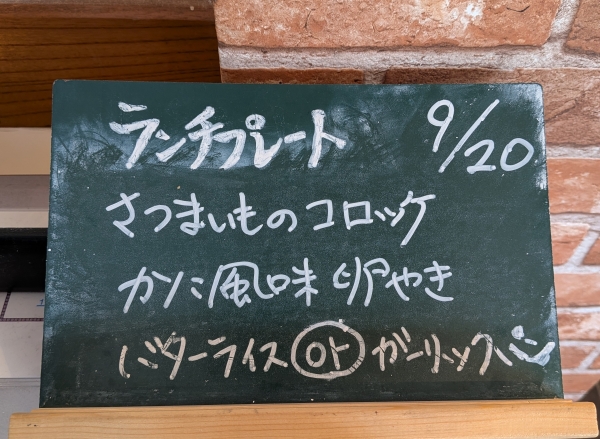 ランチプレート 9/20
さつまいものコロッケ
かに風味 卵やき
バターライス or ガーリックパン